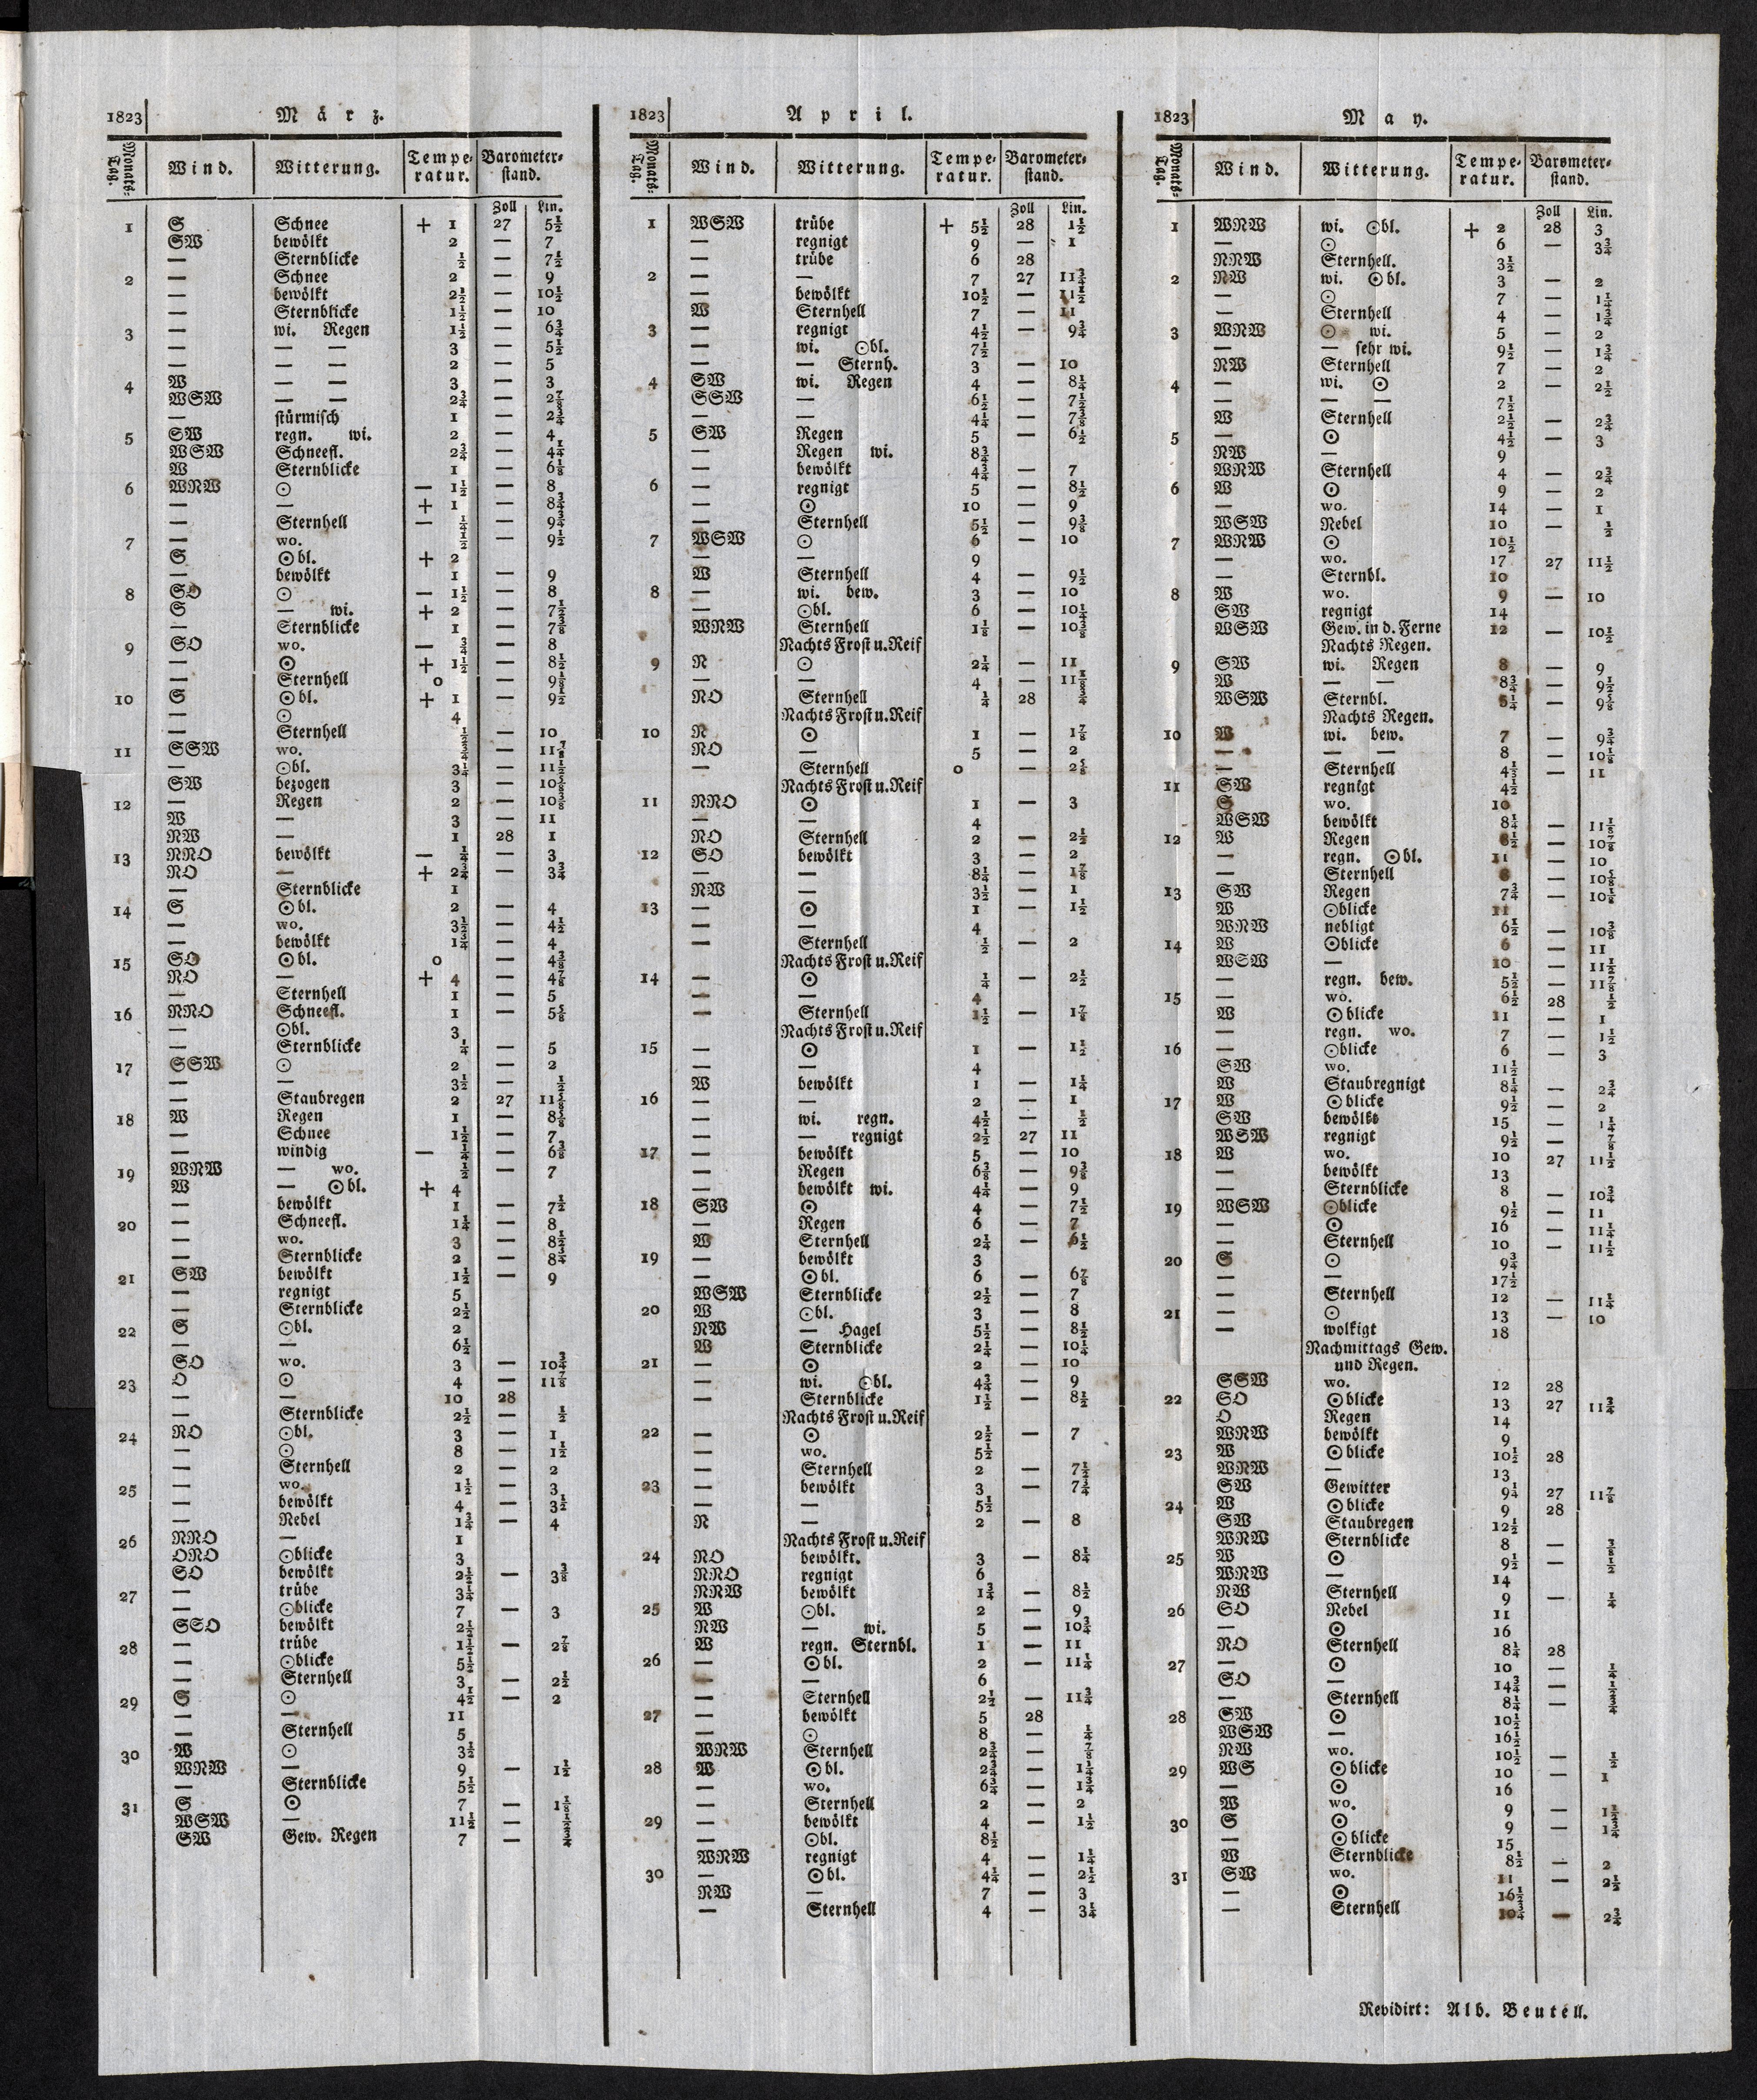 1823 März.
Monats-Tag. Wind. Witterung. Temperatur. Barometerstand.
Zoll Lin.
1 S Schnee + 1 27 5½
SW bewölkt 2 — 7
— Sternblicke ½ — 7½
2 — Schnee 2 — 9
— bewölkt 2½ — 10½
— Sternblicke 1½ — 10
3 — wi. Regen 1½ — 6¾
— — — 3 — 5½
— — — 2 — 5
4 W — — 3 — 3
WSW — — 2¾ — 2⅞
— stürmisch 1 — 2¾
5 SW regn. wi. 2 — 4
WSW Schneefl. 2¾ — 4¼
W Sternblicke 1 — 6⅛
6 WNW ☉ — 1½ — 8
— — + 1 — 8¾
— Sternhell — ¼ — 9¾
7 — wo. ½ — 9½
S ☉bl. + 2
— bewölkt 1 — 9
8 SO ☉ — 1½ — 8
S — wi. + 2 — 7½
— Sternblicke 1 — 7⅜
9 SO wo. — ¾ — 8
— ☉ + 1½ — 8½
— Sternhell 0 — 9⅛
10 S ☉bl. + 1 — 9½
— ☉ 4
— Sternhell ½ — 10
11 SSW wo. ¾ — 11⅞
— ☉bl. 3¼ — 11½
SW bezogen 3 — 10⅝
12 — Regen 2 — 10⅜
W — 3 — 11
NW — 1 28 1
13 NNO bewölkt — ¼ — 3
NO — + 2¾ — 3¾
— Sternblicke 1
14 S ☉bl. 2 — 4
— wo. 3½ — 4½
— bewölkt 1¾ — 4
15 SO ☉bl. 0 — 4⅜
NO — + 4 — 4⅞
— Sternhell 1 — 5
16 NNO Schneefl. 1 — 5⅝
— ☉bl. 3
— Sternblicke ¼ — 5
17 SSW ☉ 2 — 2
— — 3½ — ½
— Staubregen 2 27 11⅝
18 W Regen 1 — 8⅜
— Schnee 1½ — 7
— windig — ¼ — 6⅜
19 WNW — wo. ½ — 7
W — ☉bl. + 4
— bewölkt 1 — 7½
20 — Schneefl. 1¼ — 8
— wo. 3 — 8½
— Sternblicke 2 — 8¾
21 SW bewölkt 1½ — 9
— regnigt 5
— Sternblicke 2½
22 S ☉bl. 2
— — 6½
SO wo. 3 — 10¾
23 O ☉ 4 — 11⅞
— — 10 28
— Sternblicke 2½ — ½
24 NO ☉bl. 3 — 1
— ☉ 8 — 1½
— Sternhell 2 — 2
25 — wo. 1½ — 3
— bewölkt 4 — 3½
— Nebel 1¾ — 4
26 NNO — 1
ONO ☉blicke 3
SO bewölkt 2½ — 3⅜
27 — trübe 3¼
— ☉blicke 7 — 3
SSO bewölkt 2½
28 — trübe 1½ — 2⅞
— ☉blicke 5½
— Sternhell 3 — 2½
29 S ☉ 4½ — 2
— — 11
— Sternhell 5
30 W ☉ 3½
WNW — 9 — 1½
— Sternblicke 5½
31 S ☉ 7 — 1⅛
WSW — 11½ — ½
SW Gew. Regen 7 — ¾
1823 April.
Monats-Tag. Wind. Witterung. Temperatur. Barometerstand.
Zoll Lin.
1 WSW trübe + 5½ 28 1½
— regnigt 9 — 1
— trübe 6 28
2 — — 7 27 11¾
— bewölkt 10½ — 11½
W Sternhell 7 — 11
3 — regnigt 4½ — 9¾
— wi. ☉bl. 7½
— — Sternh. 3 — 10
4 SW wi. Regen 4 — 8¼
SSW — 6½ — 7½
— — 4¼ — 7⅜
5 SW Regen 5 — 6½
— Regen wi. 8¾
— bewölkt 4¾ — 7
6 — regnigt 5 — 8½
— ☉ 10 — 9
— Sternhell 5½ — 9⅜
7 WSW ☉ 6 — 10
— — 9
W Sternhell 4 — 9½
8 — wi. bew. 3 — 10
— ☉bl. 6 — 10¼
WNW Sternhell 1⅛ — 10⅜
Nachts Frost u. Reif
9 N ☉ 2¼ — 11
— — 4 — 11⅛
NO Sternhell ¼ 28 ¾
Nachts Frost u. Reif
10 N ☉ 1 — 1⅞
NO — 5 — 2
— Sternhell 0 — 2⅝
Nachts Frost u. Reif
11 NNO ☉ 1 — 3
— — 4
NO Sternhell 2 — 2½
12 SO bewölkt 3 — 2
— — 8¼ — 1⅞
NW — 3½ — 1
13 — ☉ 1 — 1½
— — 4
— Sternhell ½ — 2
Nachts Frost u. Reif
14 — ☉ ¼ — 2½
— — 4
— Sternhell 1½ — 1⅞
Nachts Frost u. Reif
15 — ☉ 1 — 1½
— — 4
W bewölkt 1 — 1¼
16 — — 2 — 1
— wi. regn. 4½ — ½
— — regnigt 2½ 27 11
17 — bewölkt 5 — 10
— Regen 6⅜ — 9⅜
— bewölkt wi. 4¼ — 9
18 SW ☉ 4 — 7½
— Regen 6 — 7
W Sternhell 2¼ — 6½
19 — bewölkt 3
— ☉bl. 6 — 6⅞
WSW Sternblicke 2½ — 7
20 W ☉bl. 3 — 8
NW — Hagel 5½ — 8½
W Sternblicke 2¼ — 10¼
21 — ☉ 2 — 10
— wi. ☉bl. 4¾ — 9
— Sternblicke 1½ — 8½
Nachts Frost u. Reif
22 — ☉ 2½ — 7
— wo. 5½
— Sternhell 2 — 7½
23 — bewölkt 3 — 7¾
— — 5½
N — 2 — 8
Nachts Frost u. Reif
24 NO bewölkt. 3 — 8¼
NNO regnigt 6
NNW bewölkt 1¾ — 8½
25 W ☉bl. 2 — 9
NW — wi. 5 — 10¾
W regn. Sternbl. 1 — 11
26 — ☉bl. 2 — 11¼
— — 6
— Sternhell 2½ — 11¾
27 — bewölkt 5 28
— ☉ 8 — ¼
WNW Sternhell 2¾ — ⅞
28 W ☉bl. 2¾ — 1¼
— wo. 6¾ — 1¾
— Sternhell 2 — 2
29 — bewölkt 4 — 1½
— ☉bl. 8½
WNW regnigt 4 — 1¼
30 — ☉bl. 4¼ — 2½
NW — 7 — 3
— Sternhell 4 — 3¼
1823 May.
Monats-Tag. Wind. Witterung. Temperatur. Barometerstand.
Zoll Lin.
1 WNW wi. ☉bl. + 2 28 3
— ☉ 6 — 3¾
NNW Sternhell. 3½
2 NW wi. ☉bl. 3 — 2
— ☉ 7 — 1¼
— Sternhell 4 — 1¾
3 WNW ☉ wi. 5 — 2
— — sehr wi. 9½ — 1¾
NW Sternhell 7 — 2
4 — wi. ☉ 2 — 2½
— — — 7½
W Sternhell 2½ — 2¾
5 — ☉ 4½ — 3
NW — 9
WNW Sternhell 4 — 2¾
6 W ☉ 9 — 2
— wo. 14 — 1
WSW Nebel 10 — ½
7 WNW ☉ 10½
— wo. 17 27 11½
— Sternbl. 10
8 W wo. 9 — 10
SW regnigt 14
WSW Gew. in d. Ferne 12 — 10½
Nachts Regen.
9 SW wi. Regen 8 — 9
W — — 8¾ — 9½
WSW Sternbl. 5¼ — 9⅝
Nachts Regen.
10 W wi. bew. 7 — 9¾
— — — 8 — 10⅛
— Sternhell 4½ — 11
11 SW regnigt 4½
S wo. 10
WSW bewölkt 8¼ — 11⅛
12 W Regen 6½ — 10⅞
— regn. ☉bl. 11 — 10
— Sternhell 8 — 10⅝
13 SW Regen 7¾ — 10⅛
W ☉blicke 11
WNW nebligt 6½ — 10⅜
14 W ☉blicke 6 — 11
WSW — 10 — 11½
— regn. bew. 5½ — 11⅞
15 — wo. 6½ 28 ½
W ☉blicke 11 — 1
— regn. wo. 7 — 1½
16 — ☉blicke 6 — 3
SW wo. 11½
W Staubregnigt 8¼ — 2¾
17 W ☉blicke 9½ — 2
SW bewölkt 15 — 1¼
WSW regnigt 9½ — ⅞
18 W wo. 10 27 11½
— bewölkt 13
— Sternblicke 8 — 10¾
19 WSW ☉blicke 9½ — 11
— ☉ 16 — 11¼
— Sternhell 10 — 11½
20 S ☉ 9¾
— — 17½
— Sternhell 12 — 11¼
21 — ☉ 13 — 10
— wolkigt 18
Nachmittags Gew.
und Regen.
SSW wo. 12 28
22 SO ☉blicke 13 27 11¾
O Regen 14
WNW bewölkt 9
23 W ☉blicke 10½ 28
WNW — 13
SW Gewitter 9¼ 27 11⅞
24 W ☉blicke 9 28
SW Staubregen 12½
WNW Sternblicke 8 — ⅜
25 W ☉ 9½ — ½
WNW — 14
NW Sternhell 9 — ¼
26 SO Nebel 11
— ☉ 16
NO Sternhell 8¼ 28
27 — ☉ 10 — ¼
SO — 14¾ — ½
— Sternhell 8¼ — ¾
28 SW ☉ 10½
WSW — 16½
NW wo. 10½ — ½
29 WS ☉blicke 10 — 1
— ☉ 16
W wo. 9 — 1½
30 S ☉ 9 — 1¾
— ☉blicke 15
W Sternblicke 8½ — 2
31 SW wo. 11 — 2½
— ☉ 16½
— Sternhell 10¾ — 2¾
Revidirt: Alb. Beutell.